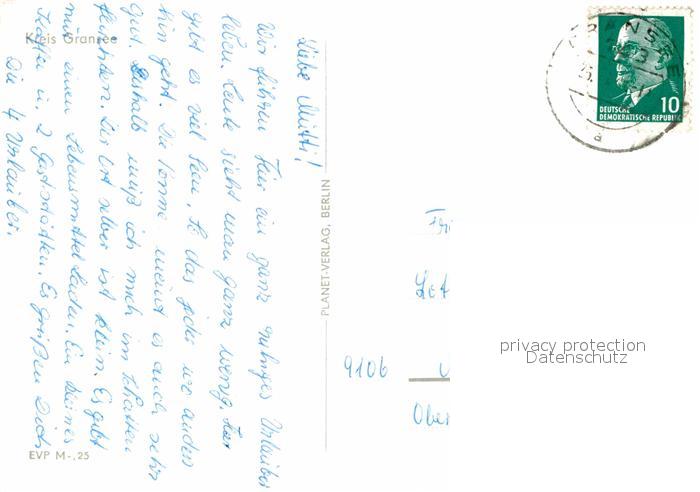 Kreis Gransee
Liebe Mutti!
Wir führen hier ein ganz ruhiges Urlauber
leben. Leute sieht man ganz wenig. Hier
gibt es viel Seen, so das jeder wo anders
hin geht. Die Sonne meint es auch sehr
gut. Deshalb muß ich mich im Schatten
Der Ort selber ist klein. Es gibt
nur einen Lebensmittel Laden. Ein kleines
Kaffee u. 2 Gaststätten. Es grüßen Dich
Die 4 Urlauber.
EVP M-,25
PLANET-VERLAG, BERLIN
GRANSEE
a
10
DEUTSCHE
DEMOKRATISCHE REPUBLIK
9106
Ober
privacy protection
Datenschutz